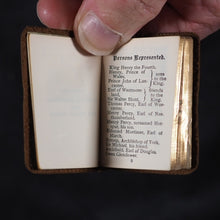 Persons Represented.
King Henry the Fourth.
Henry, Prince of
Wales,
Prince John of Lan-
caster,
sons
to the
King.
Earl of Westmoreland,
Sir Walter Blunt,
friends
to the
King.
Thomas Percy, Earl of
Worcester.
Henry Percy, Earl of Nor-
thumberland.
Henry Percy, surnamed Hotspur,
his son.
Edmund Mortimer, Earl of
March.
Scroop, Archbishop of York.
Sir Michael, his friend.
Archibald, Earl of Douglas.
Owen Glendower.